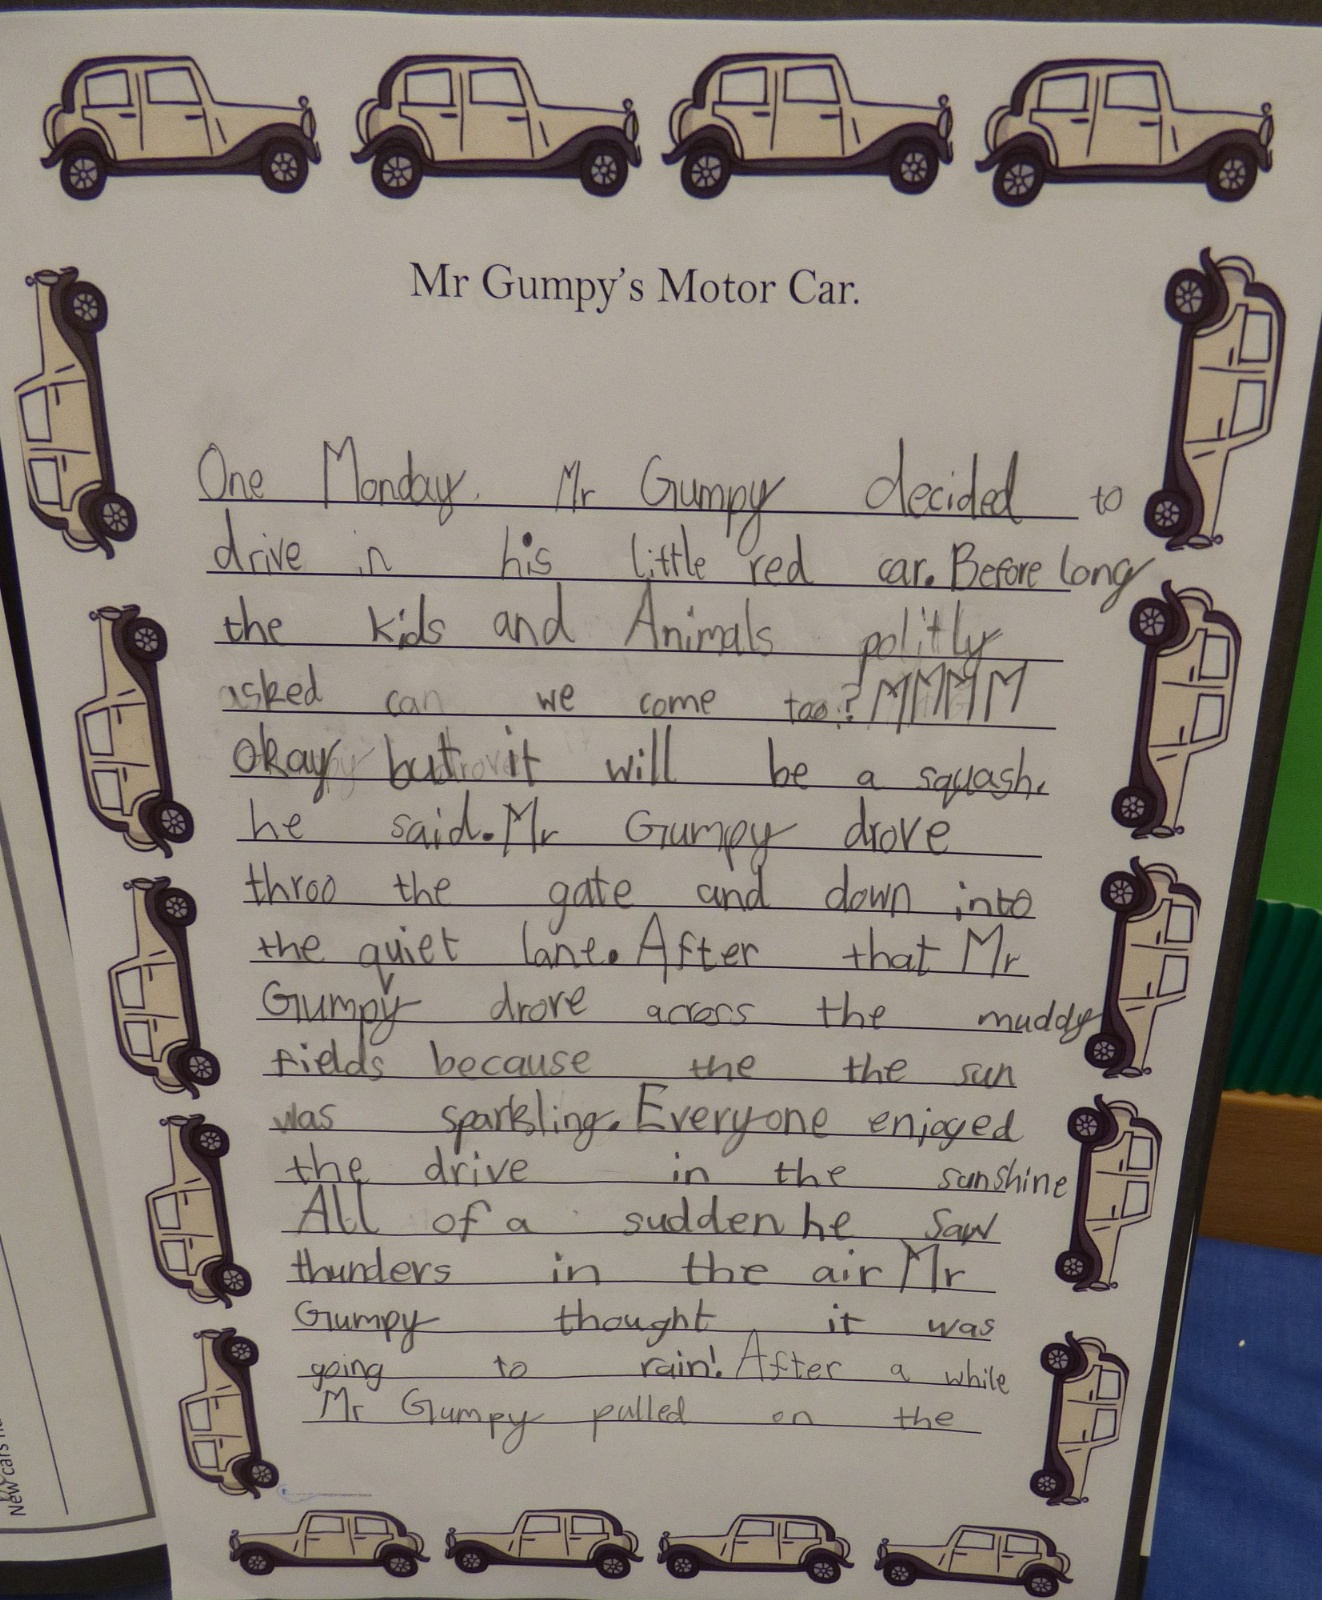 Mr Gumpy's Motor Car.
One Monday. Mr Gumpy decided to
drive in his little red car. Before long
the kids and Animals politly
asked can we come too? MMMM
okay but it will be a squash.
he said. Mr Gumpy drove
throo the gate and down into
the quiet lane. After that Mr
Gumpy drove across the muddy
fields because the the sun
was sparkling. Everyone enjoyed
the drive in the sunshine
All of a sudden he saw
thunders in the air Mr
Gumpy thought it was
going to rain! After a while
Mr Gumpy pulled on the
New cars